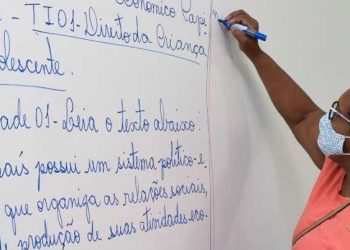 Econômico Capi-
- TI01-Direito da Criança
olescente.
ade 01-Leia o texto abaixo:
ais possui um sistema político-e
que organiza as relações sociais,
produção de suas atividades eco-